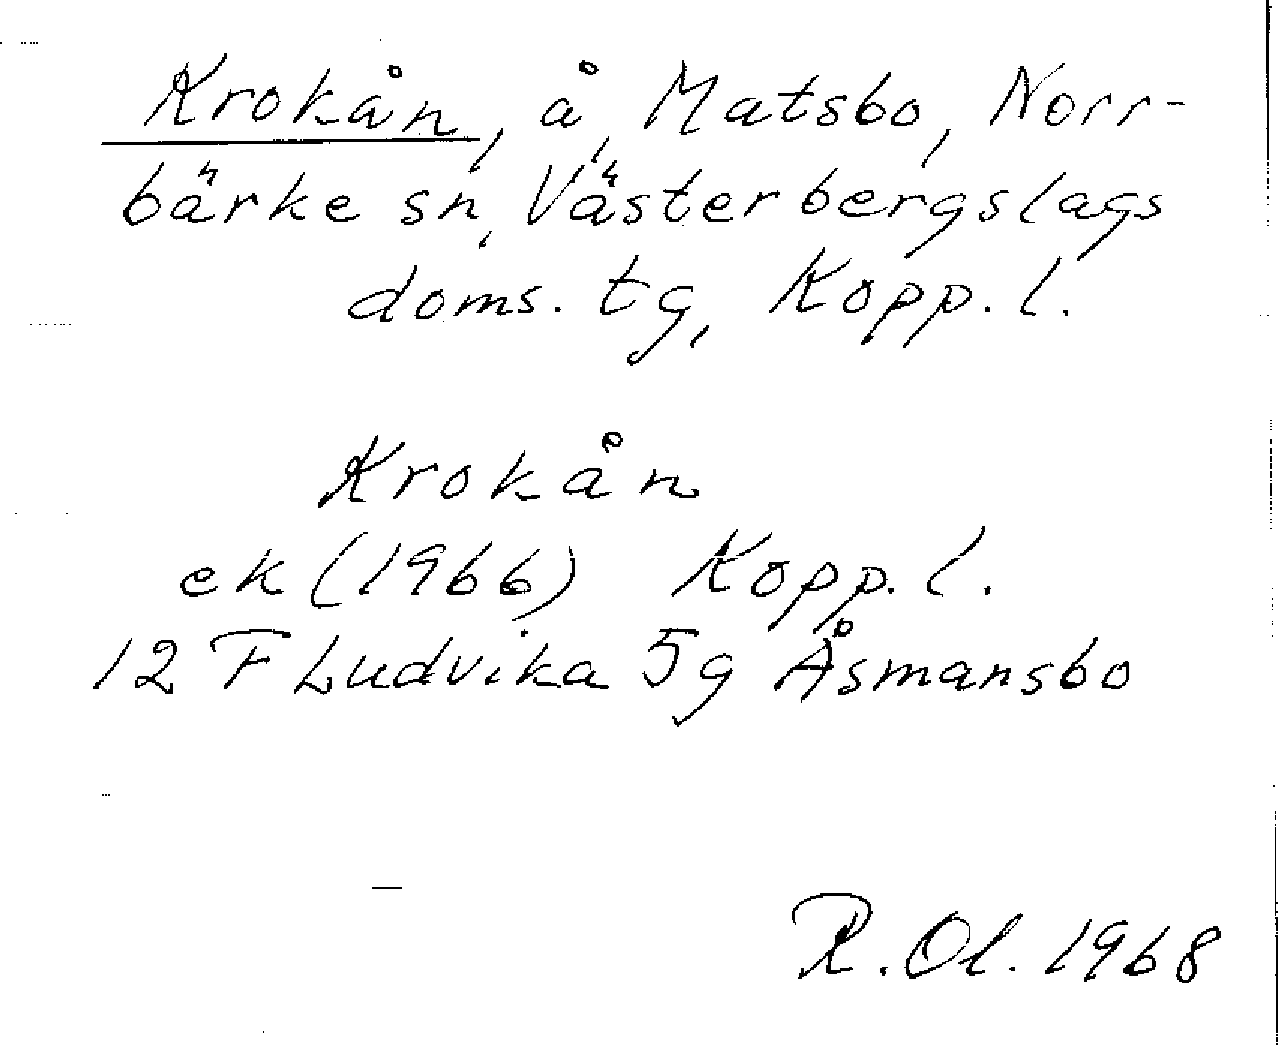 Krokån, å, Matsbo, Norr-
bärke sn, Västerbergslags
doms. tg, Kopp. l.
Krokån
ek (1966) Kopp. l.
12 F Ludvika 5g Åsmansbo
R. Ol. 1968